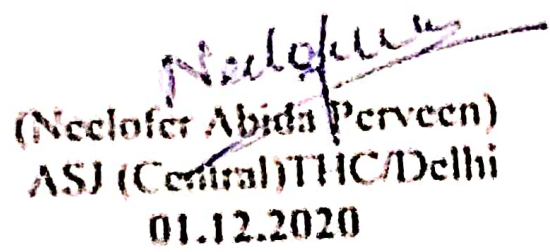 Neelofer
(Neelofer Abida Perveen)
ASJ (Central)THC/Delhi
01.12.2020